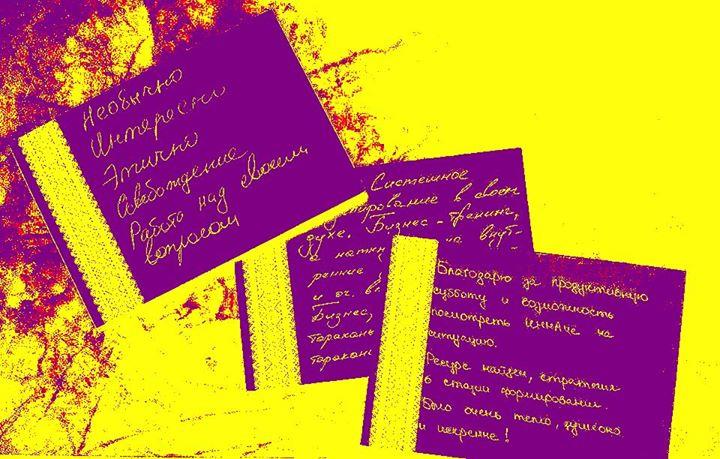 Необычно
Интересно
Этично
Освобождение
Работа над своим
вопросом
Системное
в своем
духе. Бизнес-тренинг,
на внут-
ренние
и оч.
Бизнес,
таракань
таракан
Благодарю за продуктивную
субботу и возможность
посмотреть иначе на
ситуацию.
Ресурс найден, стратегия
в стадии формирования.
Было очень тепло, душевно
и искренне!